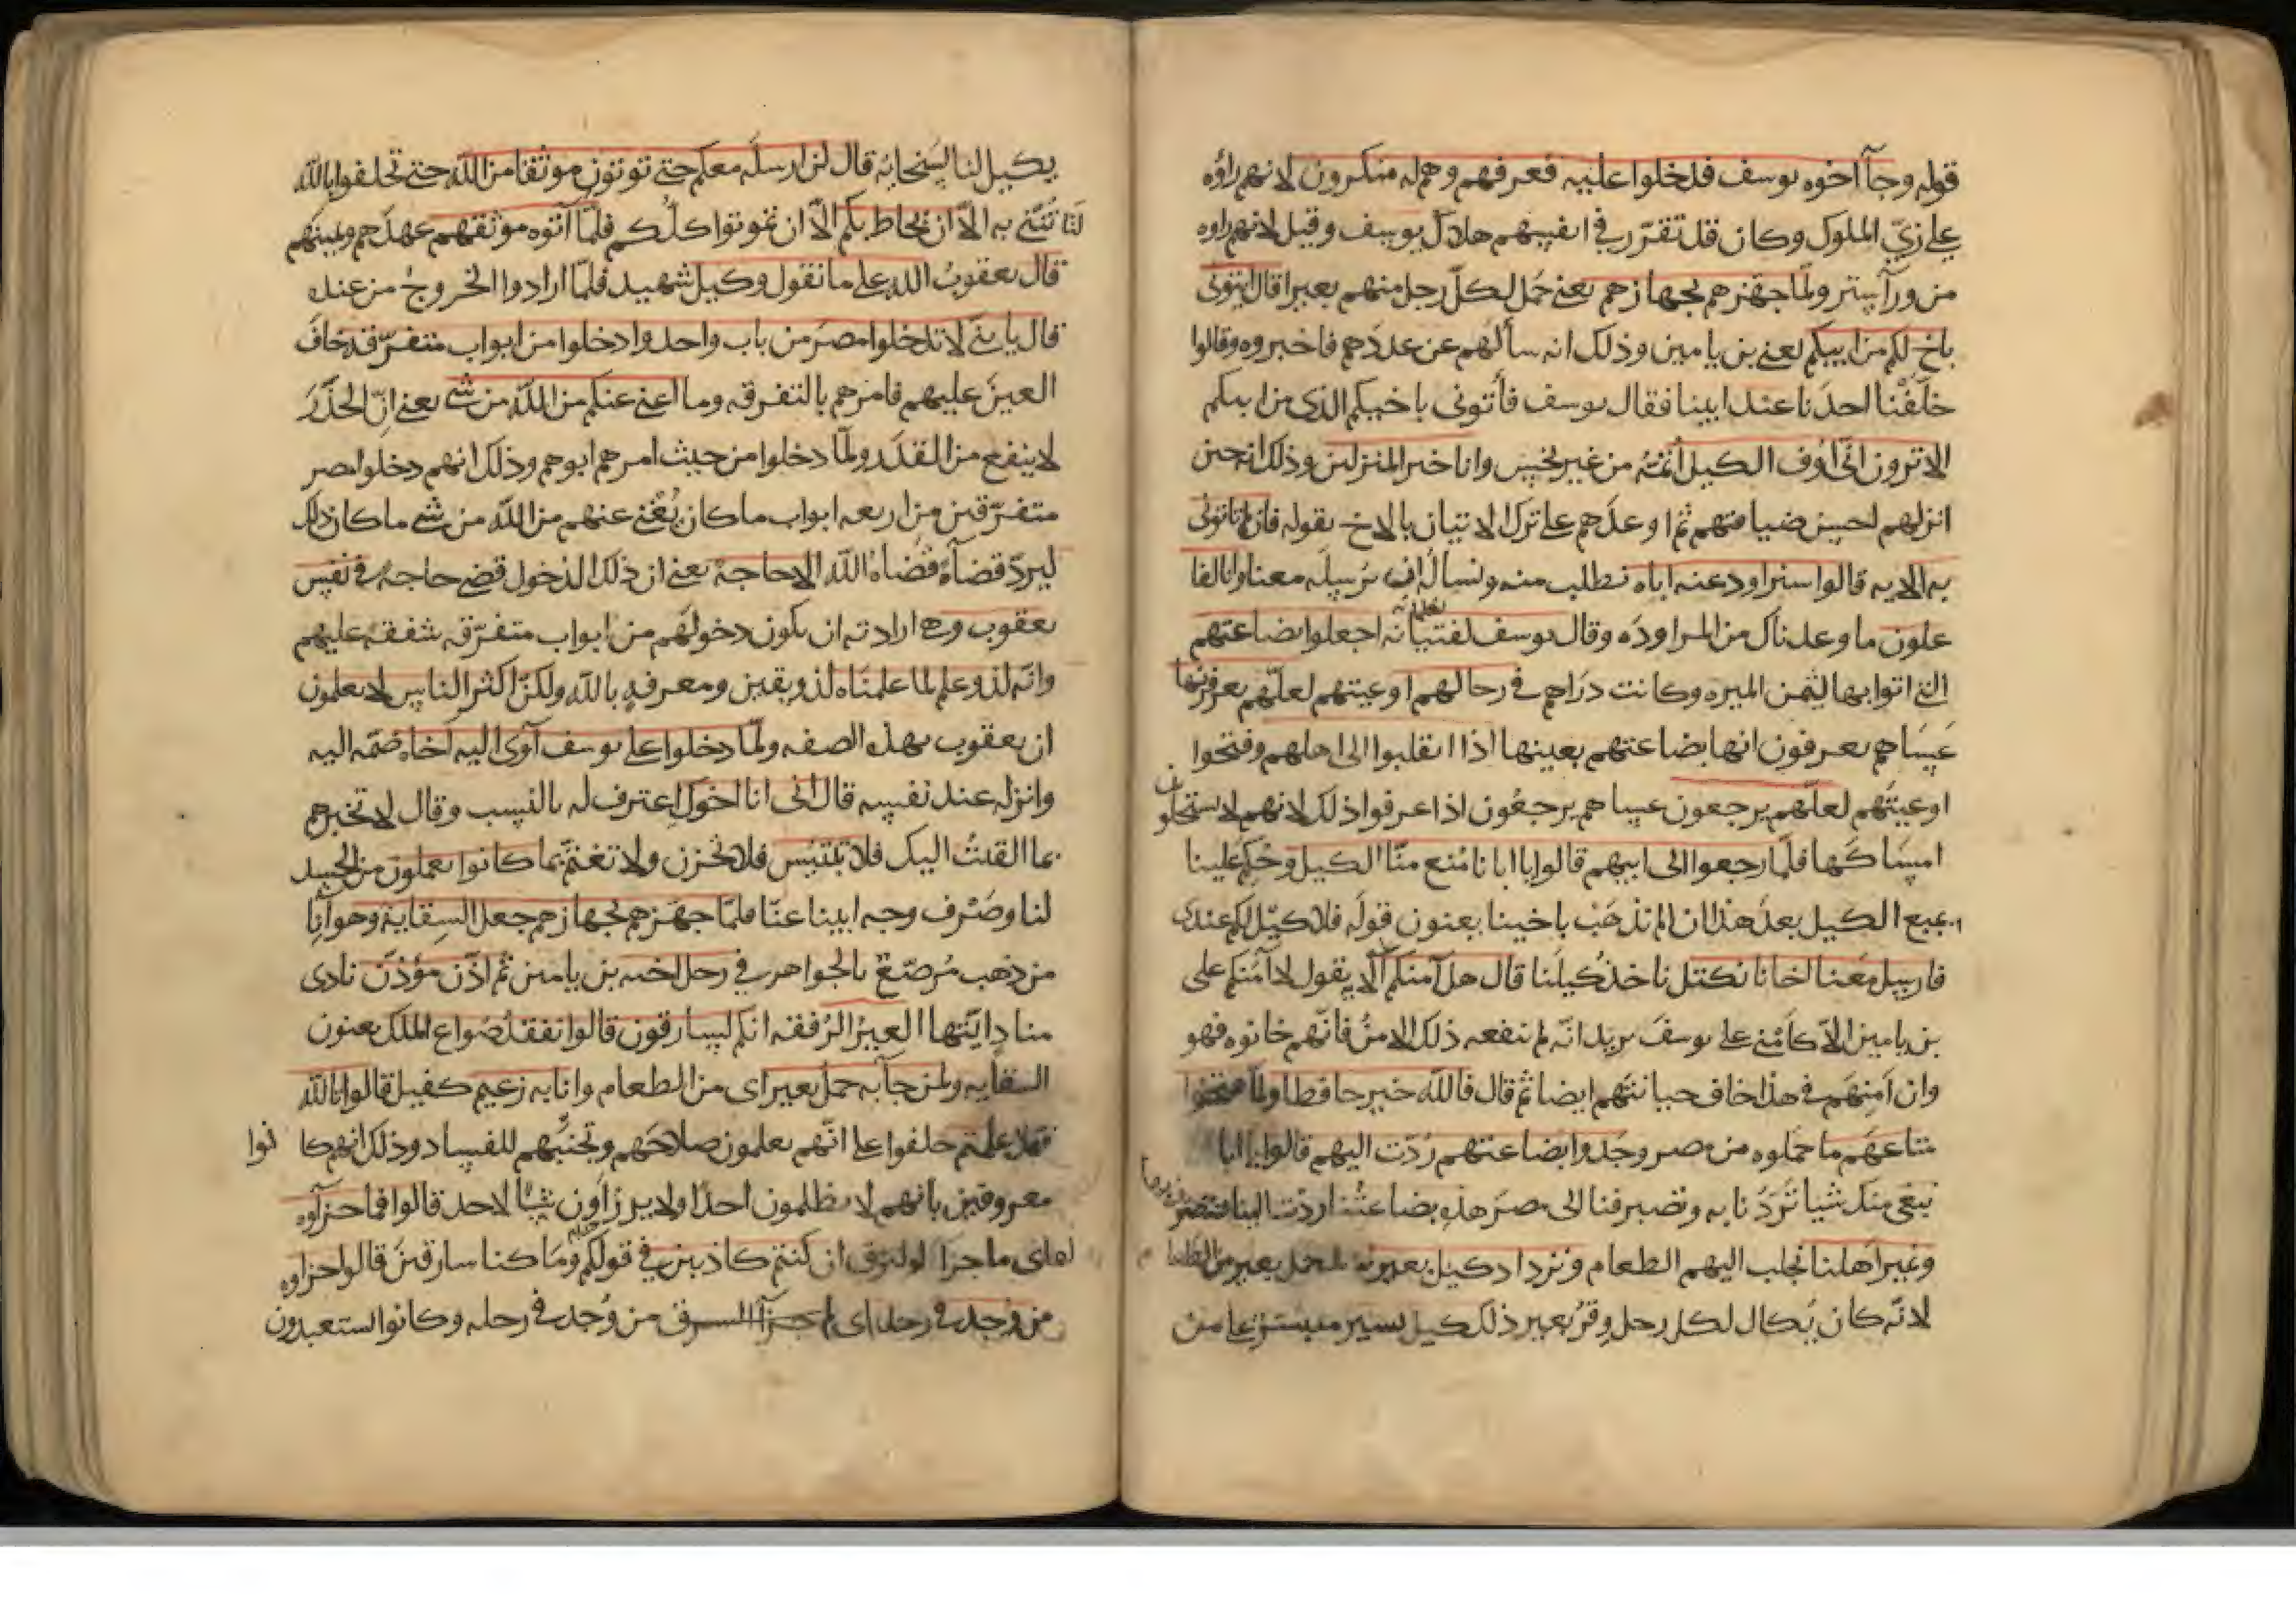 قوله وجآ اخوه يوسف فدخلوا عليه فعرفهم وهم له منكرون لانهم راؤه
على زيّ الملوك وكان قد تقرّر في انفسهم هلاك يوسف وقيل لانهم راوه
من ورآ ستر ولمّا جهّزهم بجهازهم يعني حمل لكلّ رجل منهم بعيرا قال ايتونى
باخ لكم من ابيكم يعني بن يامين وذلك انه سألهم عن عددهم فاخبروه وقالوا
خلّفنا احدنا عند ابينا فقال يوسف فأتونى باخيكم الذى من ابيكم
الا ترون انّى اوف الكيل أتمّه من غير بخس وانا خير المنزلين وذلك انه حين
انزلهم احسن ضيافتهم ثم اوعدهم على ترك الاتيان بالاخ بقوله فان لم تاتونى
به الايه قالوا سنراود عنه اباه نطلب منه ونسأله ان يرسله معنا وانا لفا
علون ما وعدناك من المراوده وقال يوسف لفتيانه اجعلوا بضاعتهم
التى اتوا بها لثمن الميره وكانت دراهم في رحالهم اوعيتهم لعلّهم يعرفونها
عساهم يعرفون انها بضاعتهم بعينها اذا انقلبوا الى اهلهم وفتحوا
اوعيتهم لعلّهم يرجعون عساهم يرجعون اذا عرفوا ذلك لانهم لا يستحلون
امساكها فلمّا رجعوا الى ابيهم قالوا يا ابانا مُنع منّا الكيل وحُكم علينا
بمنع الكيل بعد هذا ان لم نذهب باخينا يعنون قوله فلا كيل لكم عندى
فارسل معنا اخانا نكتل ناخذ كيلنا قال هل آمنكم الايه يقول لا آمنكم على
بن يامين الاّ كأمني على يوسف يريد انّه لم ينفعه ذلك الامن فانّهم خانوه فهو
وان امنهم في هذا خاف خيانتهم ايضا ثم قال فالله خير حافظا ولمّا فتحوا
متاعهم ما حملوه من مصر وجدوا بضاعتهم رُدّت اليهم قالوا يا ابانا
نبغى منك شيا تردّنا به وتصرفنا الى مصر هذه بضاعتنا ردّت الينا
ونمير اهلنا نجلب اليهم الطعام ونزداد كيل بعير حمل بعير من الطعام
لانّه كان يكال لكل رجل وقر بعير ذلك كيل يسير متيسّر على من
يكيل لنا لسخائه قال لن ارسله معكم حتى توتون موثقا من الله حتى تحلفوا بالله
لتاتنّني به الاّ ان يحاط بكم الاّ ان تموتوا كلّكم فلمّا آتوه موثقهم عهدهم ويمينهم
قال يعقوب الله على ما نقول وكيل شهيد فلمّا ارادوا الخروج من عنده
قال يا بنيّ لا تدخلوا مصر من باب واحد وادخلوا من ابواب متفرّقه خاف
العين عليهم فامرهم بالتفرقه وما اغنى عنكم من الله من شى يعني انّ الحذر
لا ينفع من القدر ولمّا دخلوا من حيث امرهم ابوهم وذلك انهم دخلوا مصر
متفرّقين من اربعه ابواب ما كان يُغنى عنهم من الله من شى ما كان ذلك
ليردّ قضآءً قضاه الله الا حاجة يعني ان ذلك الدخول قضى حاجة في نفس
يعقوب وهى ارادته ان يكون دخولهم من ابواب متفرّقه شفقة عليهم
وانّه لذو علم لما علمناه لذو يقين ومعرفةٍ بالله ولكنّ اكثر الناس لا يعلمون
ان يعقوب بهذه الصفه ولمّا دخلوا على يوسف آوى اليه اخاه ضمّه اليه
وانزله عند نفسه قال انّى انا اخوك اعترف له بالنسب وقال لا تخبرهم
بما القيتُ اليك فلا تبتئس فلا تحزن ولا تغتمّ بما كانوا يعملون من الحسد
لنا وصَرْف وجه ابينا عنّا فلمّا جهّزهم بجهازهم جعل السقاية وهو انآ
من ذهب مُرصّع بالجواهر في رحل اخيه بن يامين ثم اذّن مؤذّن نادى
منادٍ ايّتها العيرُ الرُفقه انكم لسارقون قالوا نفقد صُواع الملك يعنون
السقايه ولمن جآ به حمل بعير اى من الطعام وانا به زعيم كفيل قالوا تالله
لقد علمتم حلفوا على انّهم يعلمون صلاحهم وتجنّبهم للفساد وذلك انهم كانوا
معروفين بانهم لا يظلمون احدًا ولا يرزاون شيًا لاحد قالوا فما جزآوه
اى ما جزا السرق ان كنتم كاذبين في قولكم وما كنا سارقين قالوا جزاوه
من وُجد في رحله اى جزآ السرق من وُجد في رحله وكانوا يستعبدون